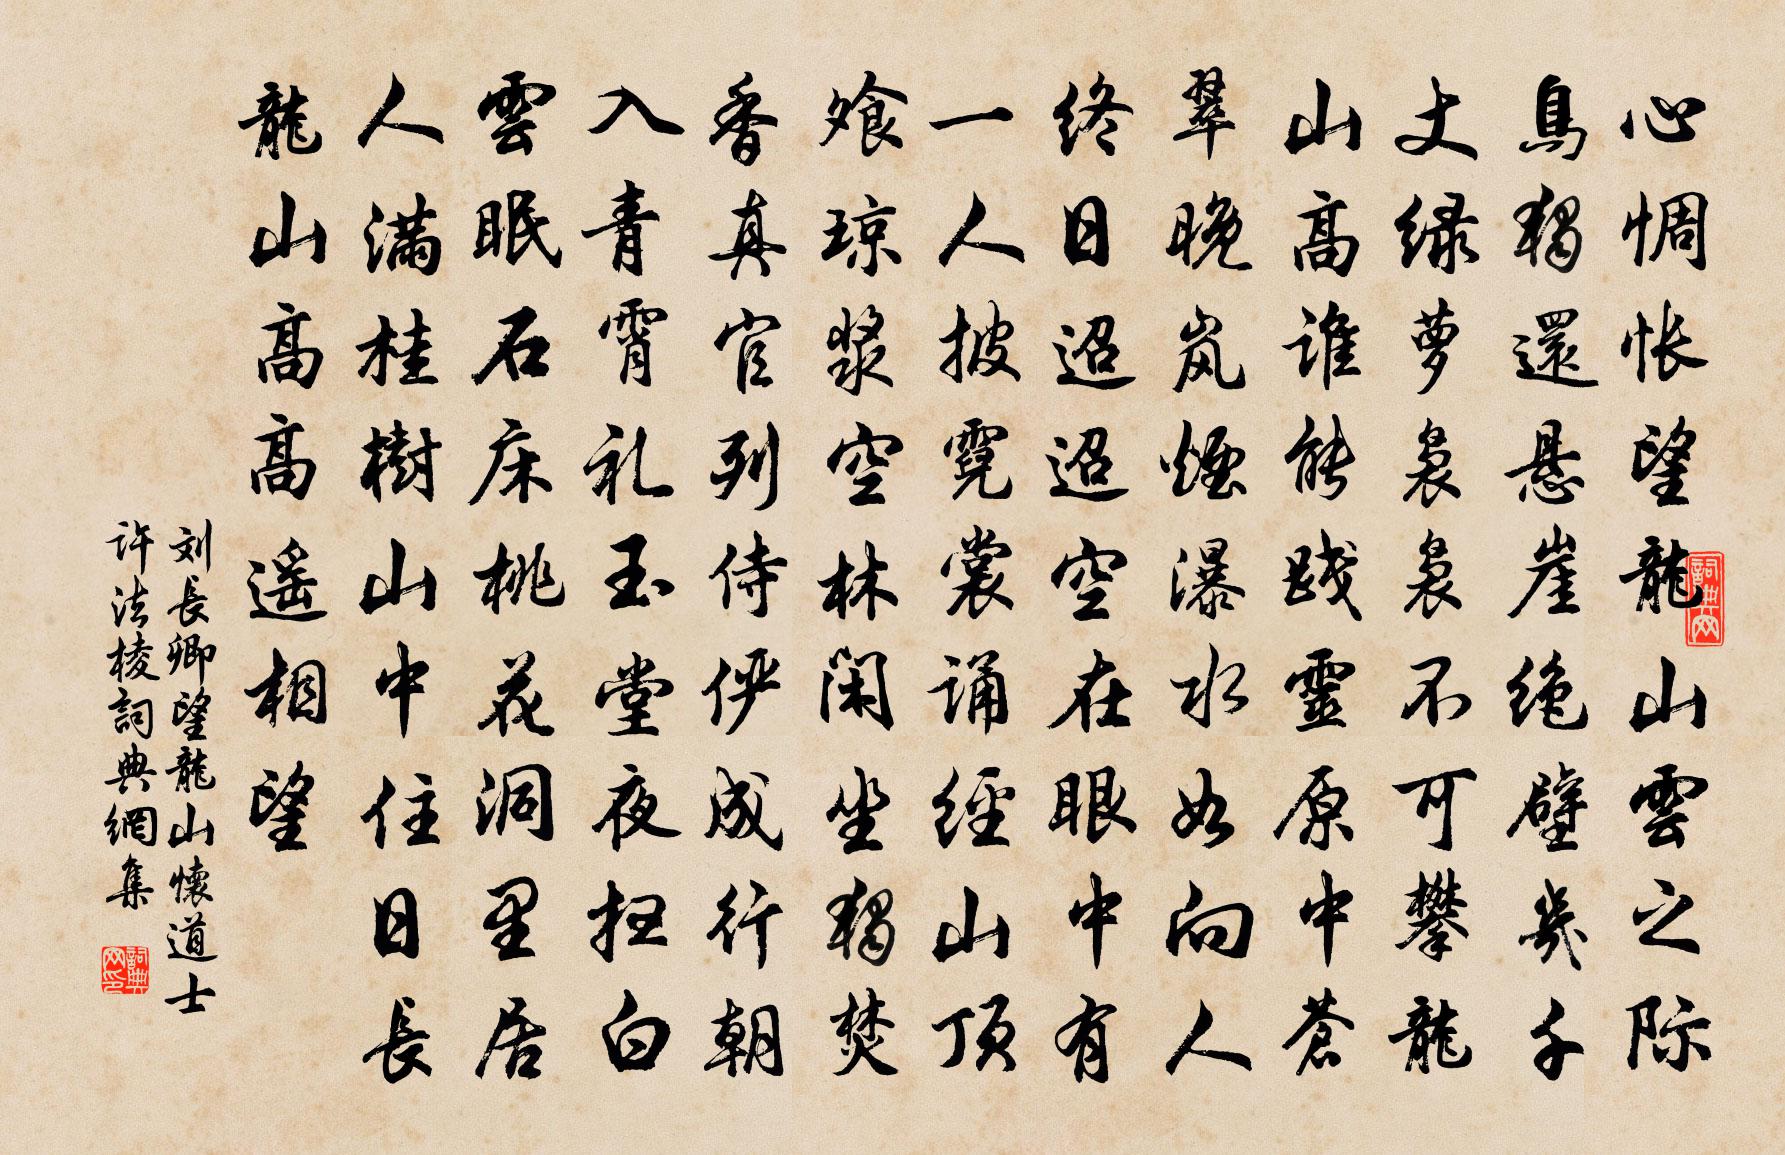 心惆怅望龍山雲之际
鳥獨還悬崖绝壁幾千
丈绿萝袅袅不可攀龍
山高谁能践靈原中蒼
翠晚岚煙瀑水如向人
终日迢迢空在眼中有
一人披霓裳诵經山顶
飧琼漿空林闲坐獨焚
香真官列侍俨成行朝
入青霄礼玉堂夜扫白
雲眠石床桃花洞里居
人满桂樹山中住日長
龍山高高遥相望
刘長卿望龍山懷道士
许法棱詞典網集
詞典网
詞典网印